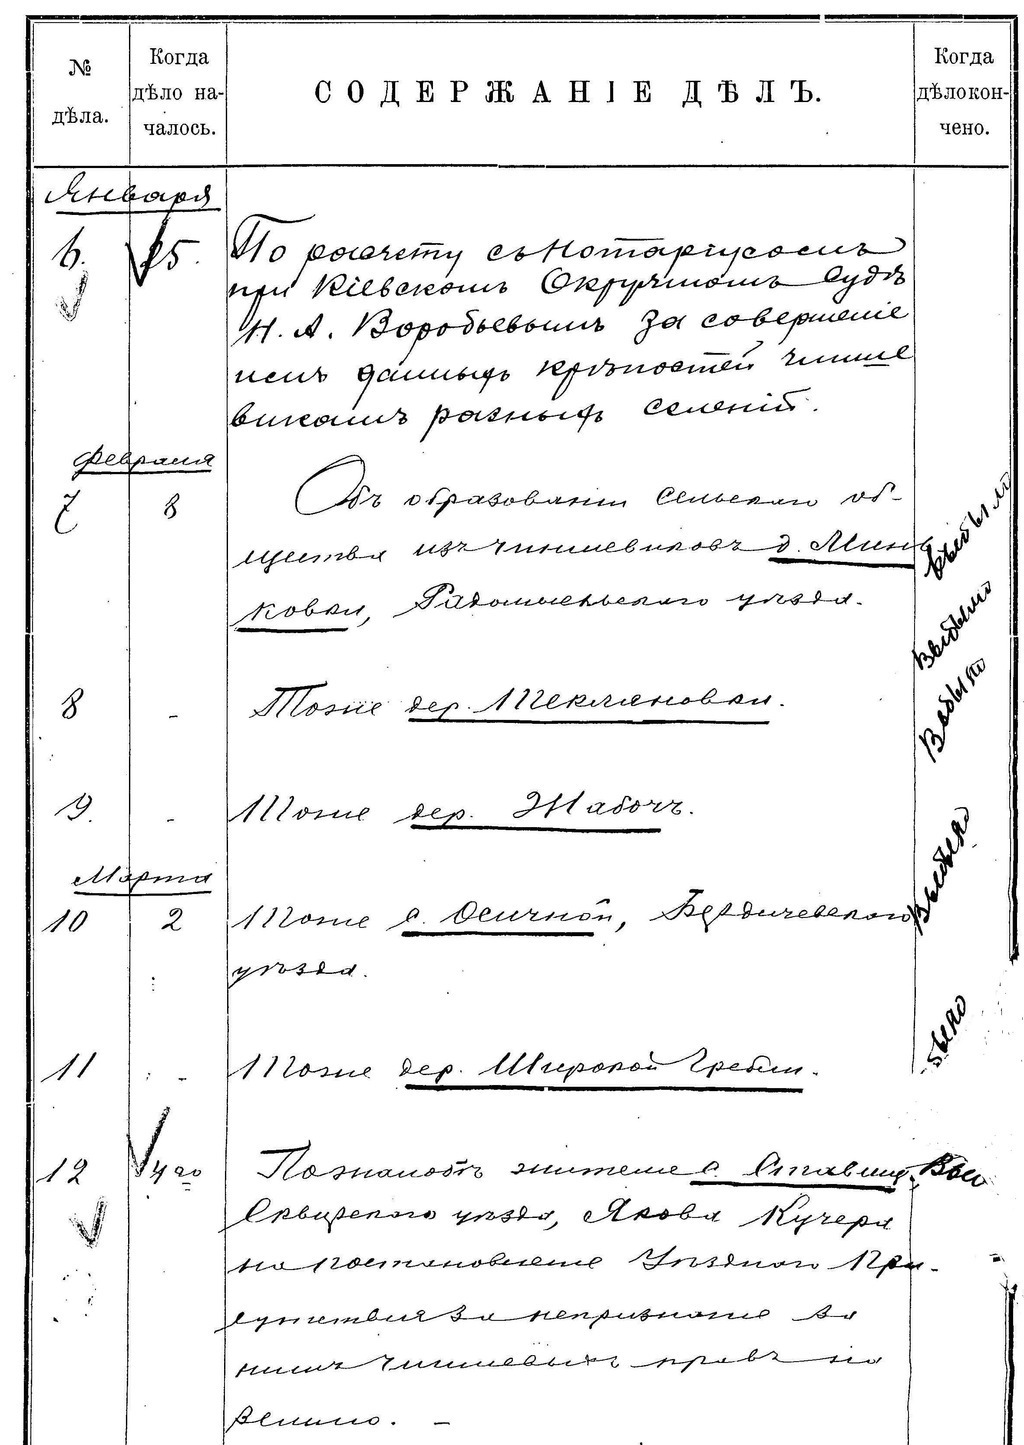 № дѣла.
Когда дѣло началось.
СОДЕРЖАНІЕ ДѢЛЪ.
Когда дѣло кончено.
Января
6. 25. По расчету съ Нотаріусомъ
при Кіевскомъ Окружномъ Судѣ
Н. А. Воробьевымъ за совершеніе
имъ данныхъ крѣпостей чинше
викамъ разныхъ селеній.
Февраля
7 8 Объ образованіи сельскаго об-
щества изъ чиншевиковъ д. Минь
ковки, Радомысльскаго уѣзда.
выбыло
8 - Тоже дер. Текляновки.
выбыло
9. - Тоже дер. Жабочъ.
выбыло
Марта
10 2 Тоже с. Осичной, Бердичевскаго
уѣзда.
выбыло
11 - Тоже дер. Широкой Гребли.
было
12 4го По жалобѣ жителя с. Ставищ
Сквирскаго уѣзда, Якова Кучера
на постановленіе Уѣзднаго При-
сутствія за непризнаніе за
нимъ чиншевыхъ правъ на
землю. -